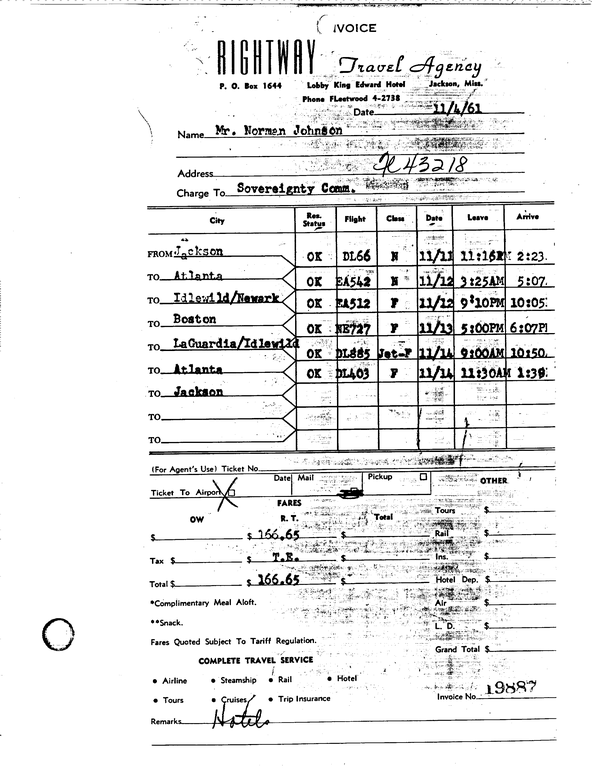 IVOICE
RIGHTWAY Travel Agency
P. O. Box 1644 Lobby King Edward Hotel Jackson, Miss.
Phone FLeetwood 4-2738
Date 11/4/61
Name Mr. Norman Johnson
Address 43218
Charge To Sovereignty Comm.
City Res. Status Flight Class Date Leave Arrive
**
FROM Jackson OK DL66 N 11/11 11:16 2:23
TO Atlanta OK EA542 N 11/12 3:25AM 5:07.
TO Idlewild/Newark OK EA512 F 11/12 9:10PM 10:05
TO Boston OK NE727 F 11/13 5:00PM 6:07P
TO LaGuardia/Idlewild OK DL885 Jet-F 11/14 9:00AM 10:50.
TO Atlanta OK DL403 F 11/14 11:30AM 1:39
TO Jackson
TO
TO
(For Agent's Use) Ticket No.
Ticket To Airport Date Mail Pickup OTHER
FARES
OW R. T. Total Tours $
$ $ 166.65 $ Rail $
Tax $ $ T.E. $ Ins. $
Total $ $ 166.65 $ Hotel Dep. $
*Complimentary Meal Aloft. Air $
**Snack. L. D. $
Fares Quoted Subject To Tariff Regulation. Grand Total $
COMPLETE TRAVEL SERVICE
• Airline • Steamship • Rail • Hotel
• Tours • Cruises • Trip Insurance Invoice No. 19887
Remarks Hotels